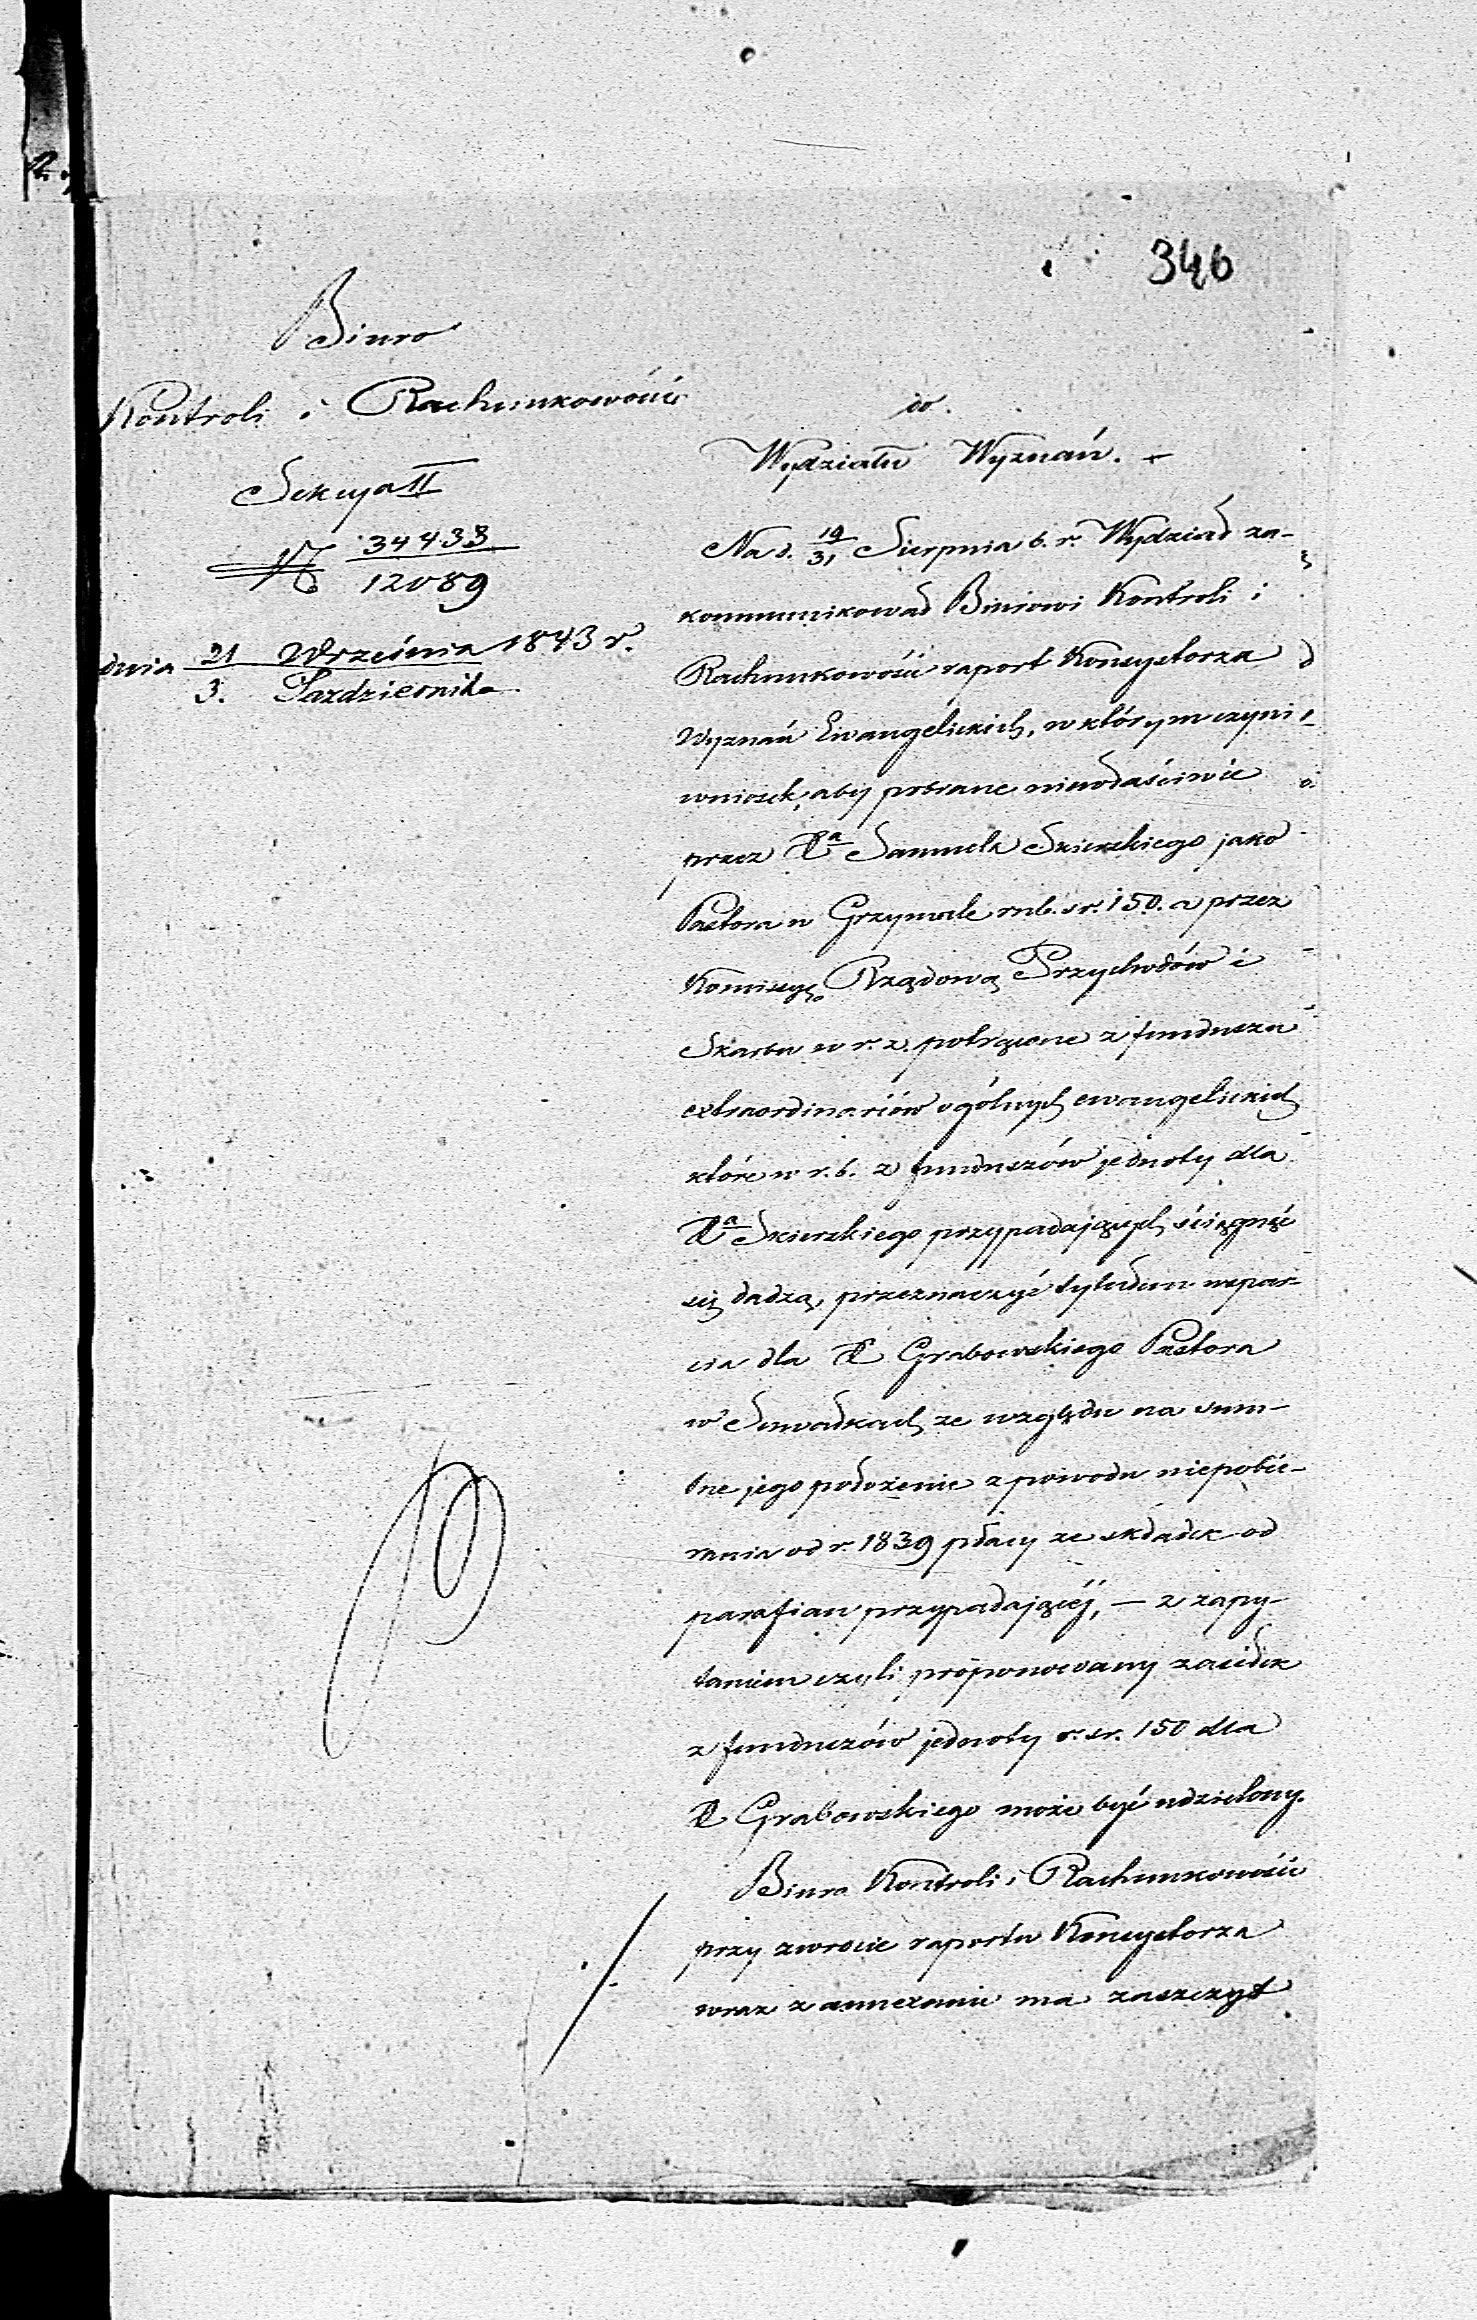 346
Biuro
Kontroli i Rachunkowości
Sekcya II
№ 34433
12089
dnia 21 Września 1843 r.
3. Października
do
Wydziału Wyznań.
Na d. 19/31 Sierpnia b. r. Wydział za-
kommunikował Biurowi Kontroli i
Rachunkowości raport Konsystorza
Wyznań Ewangelickich, w którym czyni
wniosek, aby pobrane niewłaściwie
przez Xa Samuela Skierskiego jako
Pastora w Grzymale rub. sr. 150. a przez
Komissyę Rządową Przychodów i
Skarbu w r. z. potrącone z funduszu
extraordinariów ogólnych ewangelickich
które w r. b. z funduszów jednoty dla
Xa Skierskiego przypadających ściągnąć
się dadzą, przeznaczyć tytułem wspar-
cia dla X Grabowskiego Pastora
w Suwałkach ze względu na smu-
tne jego położenie z powodu niepobie-
rania od r. 1839 płacy ze składek od
parafian przypadającéj, — z zapy-
taniem czyli proponowany zasiłek
z funduszów jednoty r. sr. 150 dla
X Grabowskiego może być udzielony.
Biuro Kontroli i Rachunkowości
przy zwrocie raportu Konsystorza
wraz z annexami ma zaszczyt